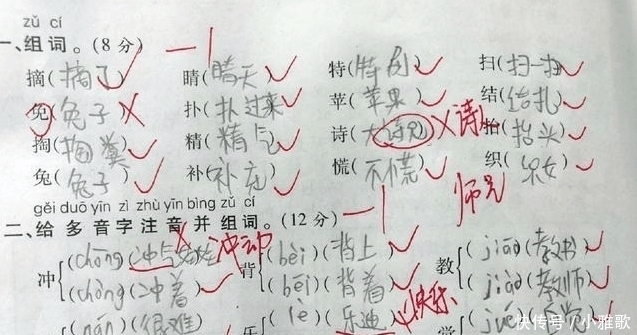 zǔ cí
一、组词。(8分) 一1
摘(摘了) 睛(晴天) 特(特别) 扫(扫一扫)
免(兔子) 扑(扑过来) 苹(苹果) 结(结扎)
掏(掏粪) 精(精气) 诗(大诗兄) 诗 抬(抬头)
兔(兔子) 补(补充) 慌(不慌) 织(织女)
师兄
gěi duō yīn zì zhù yīn bìng zǔ cí
二、给多音字注音并组词。(12分) 一1
冲{(chōng)(冲气) 冲动 背{(bēi)(背上) 教{(jiāo)(教书)
(chòng)(冲着) (bēi)(背着) (jiào)(教师)
(nán)(很难) 乐 (lè)(乐迪) 快乐 觉 (jué)
快传号/小雅歌